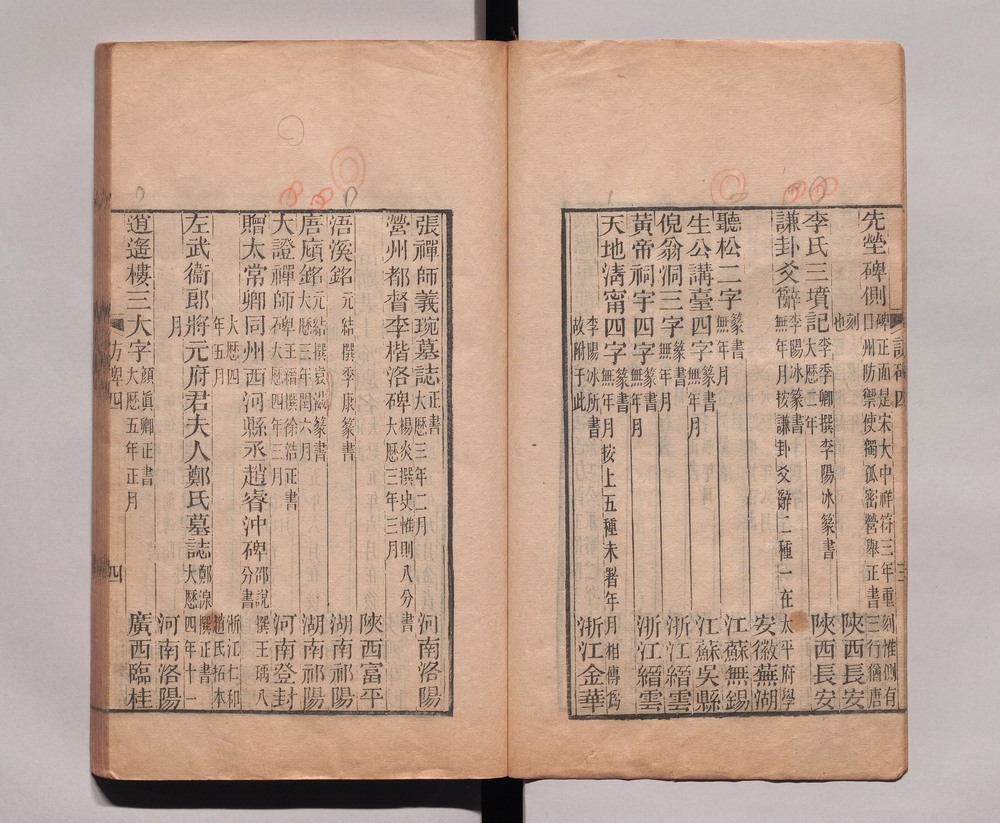 先塋碑側 碑正面是宋大中祥符三年重刻惟側有
日州防禦使獨孤密營舉正書三行猶唐
刻也 陝西長安
李氏三墳記 李季卿撰李陽冰篆書
大曆二年 陝西長安
謙卦爻辭 李陽冰篆書
無年月按謙卦爻辭二種一在太平府學 安徽蕪湖
聽松二字 篆書
無年月 江蘇無錫
生公講臺四字 篆書
無年月 江蘇吳縣
倪翁洞三字 篆書
無年月 浙江縉雲
黃帝祠宇四字 篆書
無年月 浙江縉雲
天地清甯四字 無年月按上五種未署年月相傳爲
李陽冰所書
故附于此 浙江金華
張禪師義琬墓誌 正書
大曆三年二月 河南洛陽
營州都督李楷洛碑 楊炎撰史惟則八分書
大曆三年三月 陝西富平
浯溪銘 元結撰季康篆書 湖南祁陽
唐廎銘 元結撰袁滋篆書
大曆三年閏六月 湖南祁陽
大證禪師碑 王縉撰徐浩正書
大曆四年三月 河南登封
贈太常卿同州西河縣丞趙睿沖碑 邵説撰王瑀八
分書
大曆四
年五月 浙江仁和
趙氏拓本
左武衞郎將元府君夫人鄭氏墓誌 鄭湶撰正書
大歷四年十一
月 河南洛陽
逍遙樓三大字 顔眞卿正書
大歷五年正月 廣西臨桂